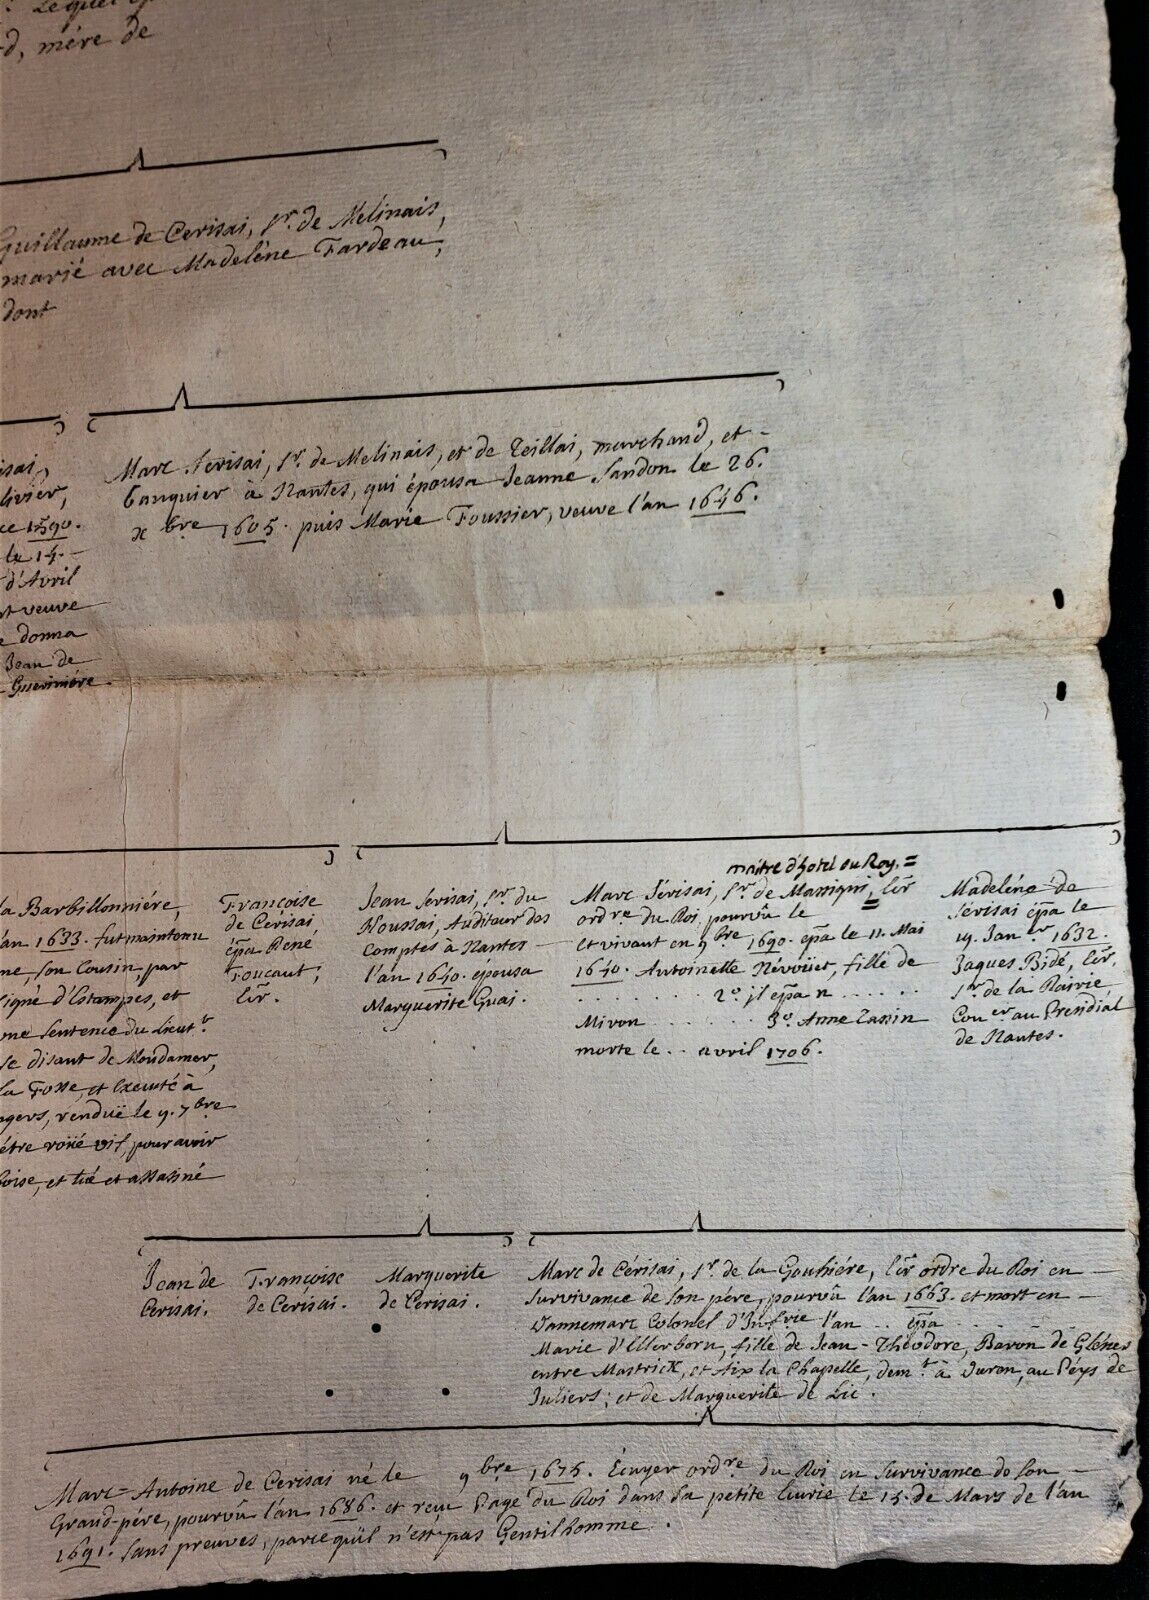 Lequel
d, mére de
Guillaume de Cerisai, sr. de Mélinais,
marié avec Madeléne Fardeau,
dont
isai,
livier,
ce 1590.
le 14.
d'Avril
veuve
donna
Jean de
Guerinière.
Marc Serisai, sr. de Melinais, et de Teillai, marchand, et
banquier à Nantes, qui épousa Jeanne Sandon le 26.
xbre 1605. puis Marie Foussier, veuve l'an 1646.
la Barbillonniére,
an 1633. fut maintenu
ne, son Cousin, par
signé d'Estampes, et
une Sentence du Lieutt
se disant de Moudamer,
la Fosse, et executé à
ngers, renduë le 9. 7bre
étre roüé vif, pour avoir
boise, et tüé et assasiné
Françoise
de Cerisai,
épa René
Foucaut,
Er.
Jean Serisai, sr. du
Houssai, Auditeur des
Comptes à Nantes
l'an 1640. épousa
Marguerite Guai.
maitre d'hotel du Roy. =
Marc Sérisai, sr. de Massigni, Er
ordre du Roi, pourvû le
et vivant en 9bre 1690. épa le 11. Mai
1640. Antoinette Névoüet, fille de
. . . . . . . . 2o. il épa n . . . . .
Miron . . . . . . . 3o. Anne Tassin
morte le . . avril 1706.
Madeléne de
Sérisai épa le
19. Janer 1632.
Jaques Bidé, Er,
sr. de la
Coner au Presidial
de Nantes.
Jean de
Cerisai.
Françoise
de Cerisai.
Marguerite
de Cerisai.
Marc de Cérisai, sr. de la Gouhiére, Er ordre du Roi en
survivance de son pére, pourvû l'an 1663. et mort en
Dannemarc Colonel d'Infrie l'an . . épa . . . . .
Marie d'Elterborn, fille de Jean-Théodore, Baron de
entre Mastrick, et Aix la Chapelle, demt à Duron, au Péys de
Juliers; et de Marguerite de Lic.
Marc-Antoine de Cerisai né le 9bre 1675. Ecuyer ordre du Roi en survivance de son
Grand-pére, pourvû l'an 1686. et reçu Page du Roi dans sa petite Ecurie le 15. de Mars de l'an
1691. sans preuves, parce qu'il n'est pas Gentilhomme.